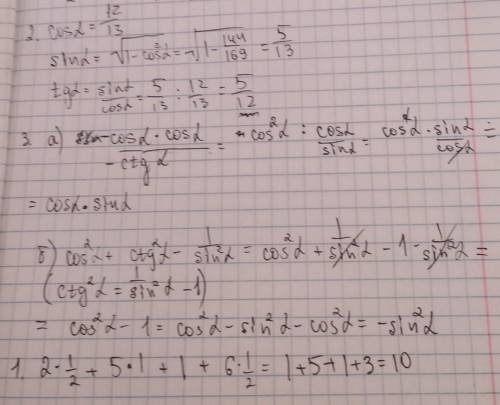 2. cosα = 12/13
sinα = √(1-cos²α) = √(1 - 144/169) = 5/13
tgα = sinα/cosα = 5/13 : 12/13 = 5/12
3. а) (-cosα · cosα)/(-ctgα) = cos²α : cosα/sinα = (cos²α · sinα)/cosα =
= cosα · sinα
б) cos²α + ctg²α - 1/sin²α = cos²α + 1/sin²α - 1 - 1/sin²α =
(ctg²α = 1/sin²α - 1)
= cos²α - 1 = cos²α - sin²α - cos²α = -sin²α
1. 2·1/2 + 5·1 + 1 + 6·1/2 = 1+5+1+3=10